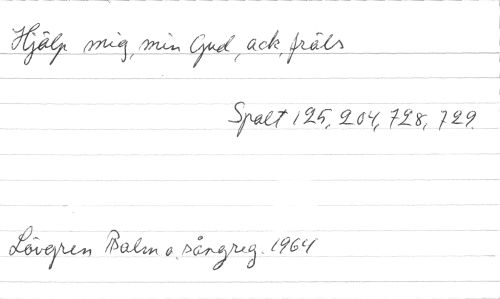 Hjälp mig, min Gud, ack, fräls
Spalt 125, 204, 728, 729.
Lövgren Psalm o. sångreg. 1964